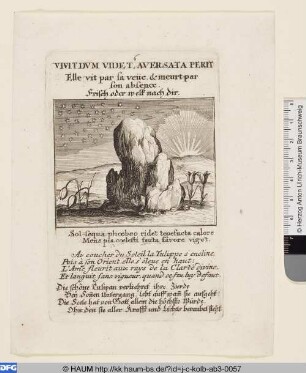 VIVIT DVM VIDET, AVERSATA PERIT
Elle vit par sa veüe, & meurt par
son absence.
Frisch oder welk nach dir.
Sol-sequa phœbeo ridet tenefacta calore
Mens pia cœlesti facta favore viget.
Au coucher du Soleil la Tulippe s'encline
Puis à son Orient elle s'éleve en haut:
L'Ame fleurit aux rays de la Clarté divine,
Et languit sans vigueur, quand
Die schöne Tulipan verliehret ihre Zierde
Bey Sonen Untergang, lebt auff wan sie aufgeht:
Die Seele hat von Gott allein die höchste Würde.
Ohn den sie aller Krafft und Liechts beraubet steht.
© Herzog Anton Ulrich-Museum Braunschweig
DFG
© HAUM http://kk.haum-bs.de/?id=j-c-kolb-ab3-0057